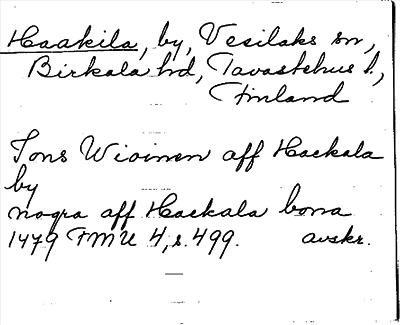 Haakila, by, Vesilaks sn,
Birkala hd, Tavastehus l.,
Finland
Jons Wioinen aff Hackala
by
nogra aff Hackala bona
1479 FMU 4, s. 499. avskr.